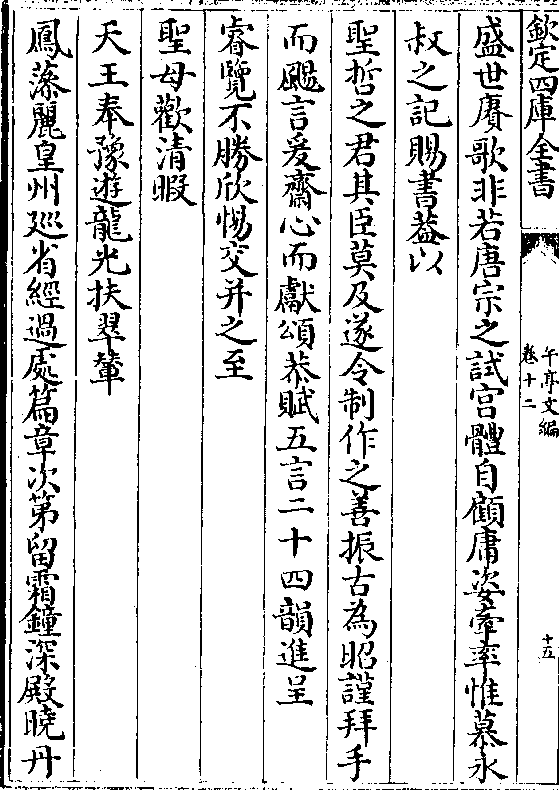 欽定四庫全書
午亭文編
卷十二
十五
盛世賡歌非若唐宗之試宮體自顧庸姿牽率惟慕永
叔之記賜書葢以
聖哲之君其臣莫及遂令制作之善振古為昭謹拜手
而颺言爰齋心而獻頌恭賦五言二十四韻進呈
睿覽不勝欣惕交并之至
聖母歡清暇
天王奉豫遊龍光扶翠輦
鳳藻麗皇州廵省經過處篇章次第留霜鐘深殿曉丹